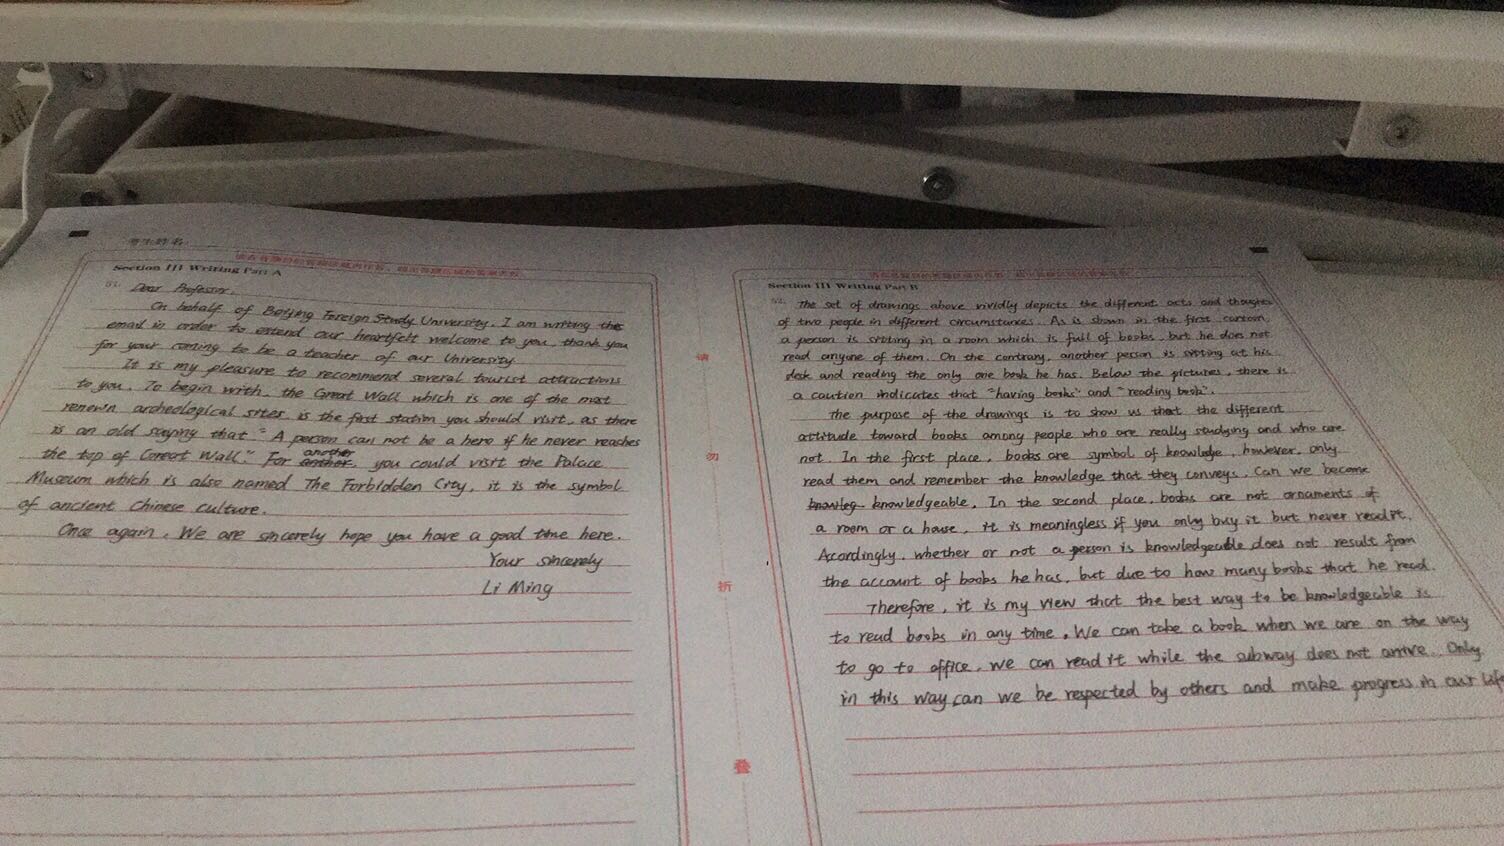 考生姓名
请在各题目的答题区域内作答，超出答题区域的答案无效
Section III Writing Part A
51. Dear Professor,
On behalf of Beijing Foreign Study University, I am writing this
email in order to extend our heartfelt welcome to you, thank you
for your coming to be a teacher of our University
It is my pleasure to recommend several tourist attractions
to you. To begin with, the Great Wall which is one of the most
renewn archeological sites, is the first station you should visit, as there
is an old saying that " A person can not be a hero if he never reaches
the top of Great Wall." For another, you could visit the Palace
Museum which is also named The Forbidden City, it is the symbol
of ancient Chinese culture.
Once again, We are sincerely hope you have a good time here.
Your sincerely
Li Ming
请
勿
折
叠
请在各题目的答题区域内作答，超出答题区域的答案无效
Section III Writing Part B
52. The set of drawings above vividly depicts the different acts and thoughts
of two people in different circumstances. As is shown in the first cartoon,
a person is sitting in a room which is full of books, but he does not
read anyone of them. On the contrary, another person is sitting at his
desk and reading the only one book he has. Below the pictures, there is
a caution indicates that "having books" and "reading book".
The purpose of the drawings is to show us that the different
attitude toward books among people who are really studying and who are
not. In the first place, books are symbol of knowledge, however, only
read them and remember the knowledge that they conveys, can we become
knowledgeable. In the second place, books are not ornaments of
a room or a house, it is meaningless if you only buy it but never read it.
Acordingly, whether or not a person is knowledgeable does not result from
the account of books he has, but due to how many books that he read.
Therefore, it is my view that the best way to be knowledgeable is
to read books in any time. We can take a book when we are on the way
to go to office, we can read it while the subway does not arrive. Only
in this way, can we be respected by others and make progress in our life